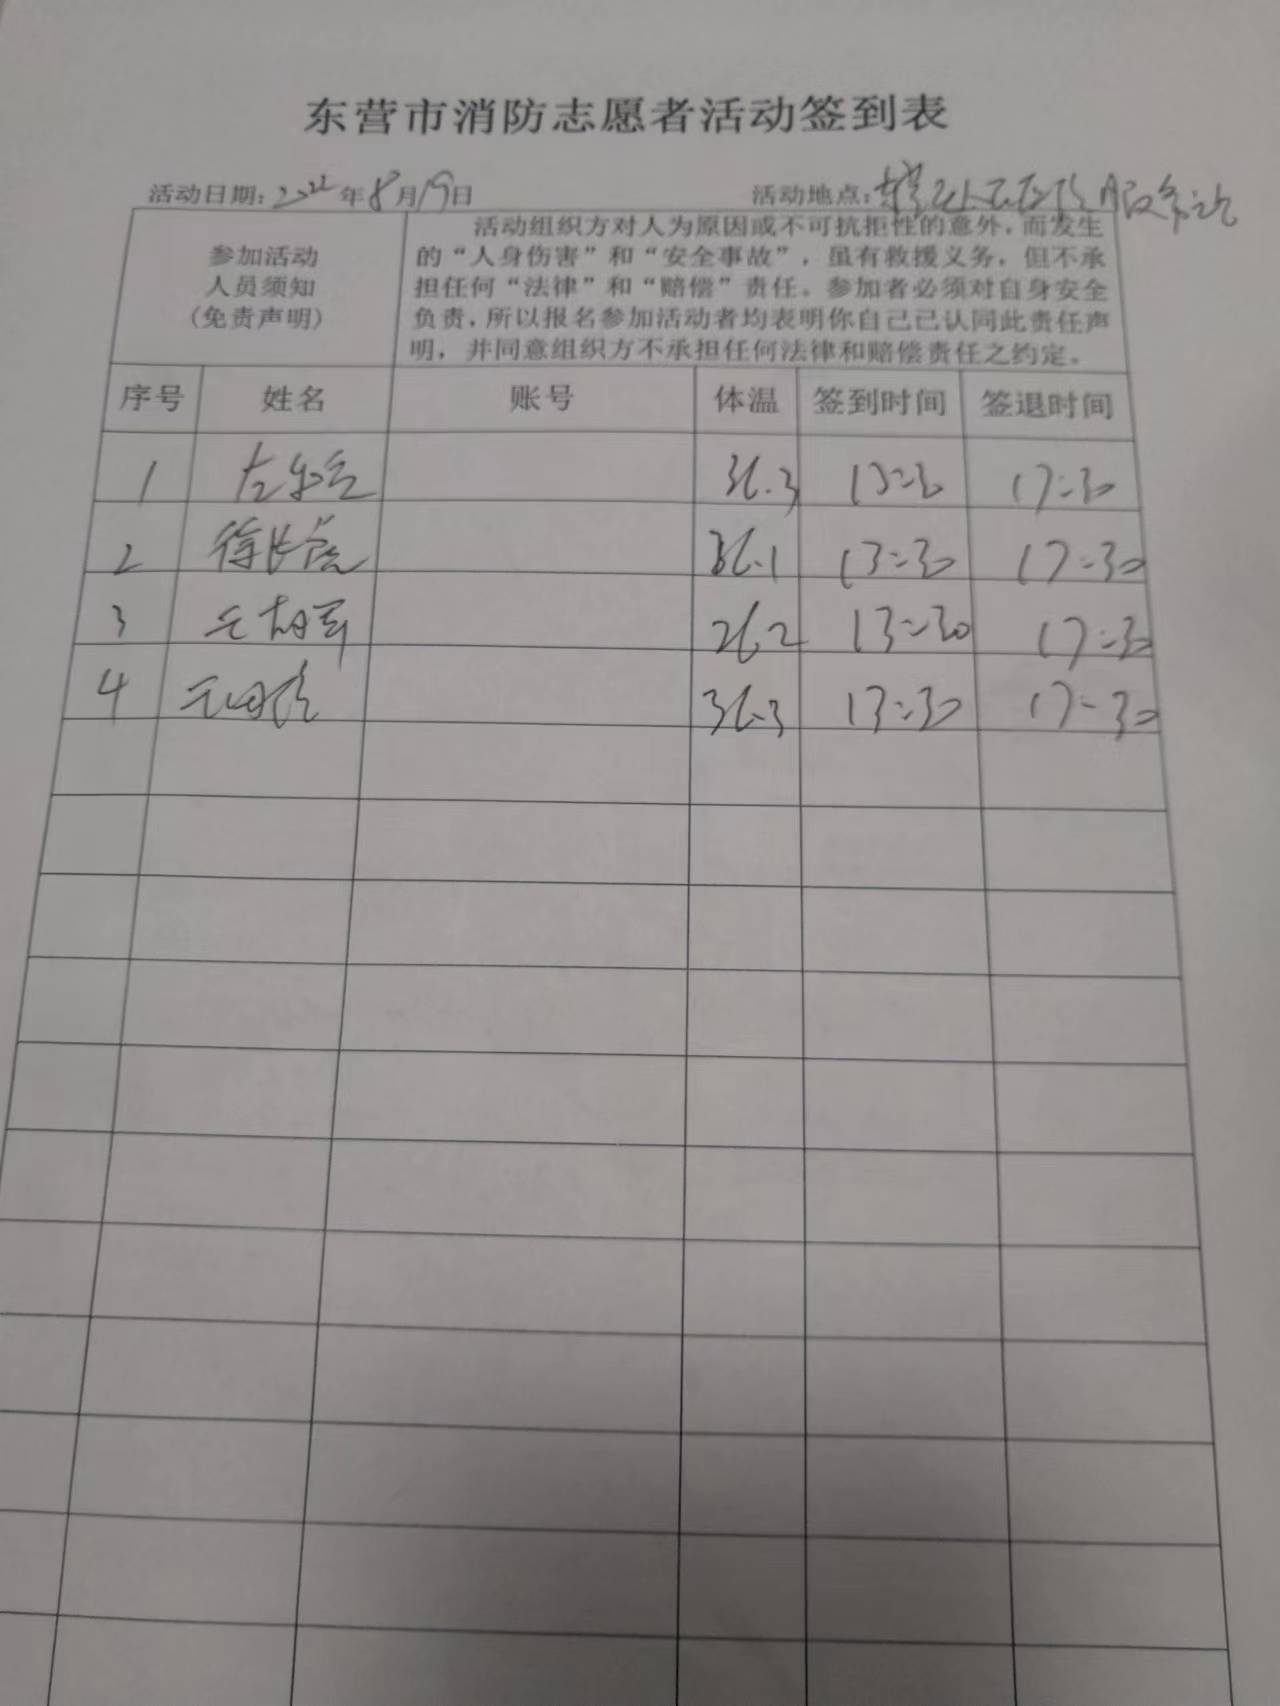 东营市消防志愿者活动签到表
活动日期：2022年8月19日 活动地点： 服务站
参加活动
人员须知
(免责声明)
活动组织方对人为原因或不可抗拒性的意外，而发生
的“人身伤害”和“安全事故”，虽有救援义务，但不承
担任何“法律”和“赔偿”责任。参加者必须对自身安全
负责，所以报名参加活动者均表明你自己已认同此责任声
明，并同意组织方不承担任何法律和赔偿责任之约定。
序号 姓名 账号 体温 签到时间 签退时间
1 36.3 13:30 17:30
2 徐 36.1 13:30 17:30
3 26.2 13:30 17:30
4 36.3 13:30 17:30